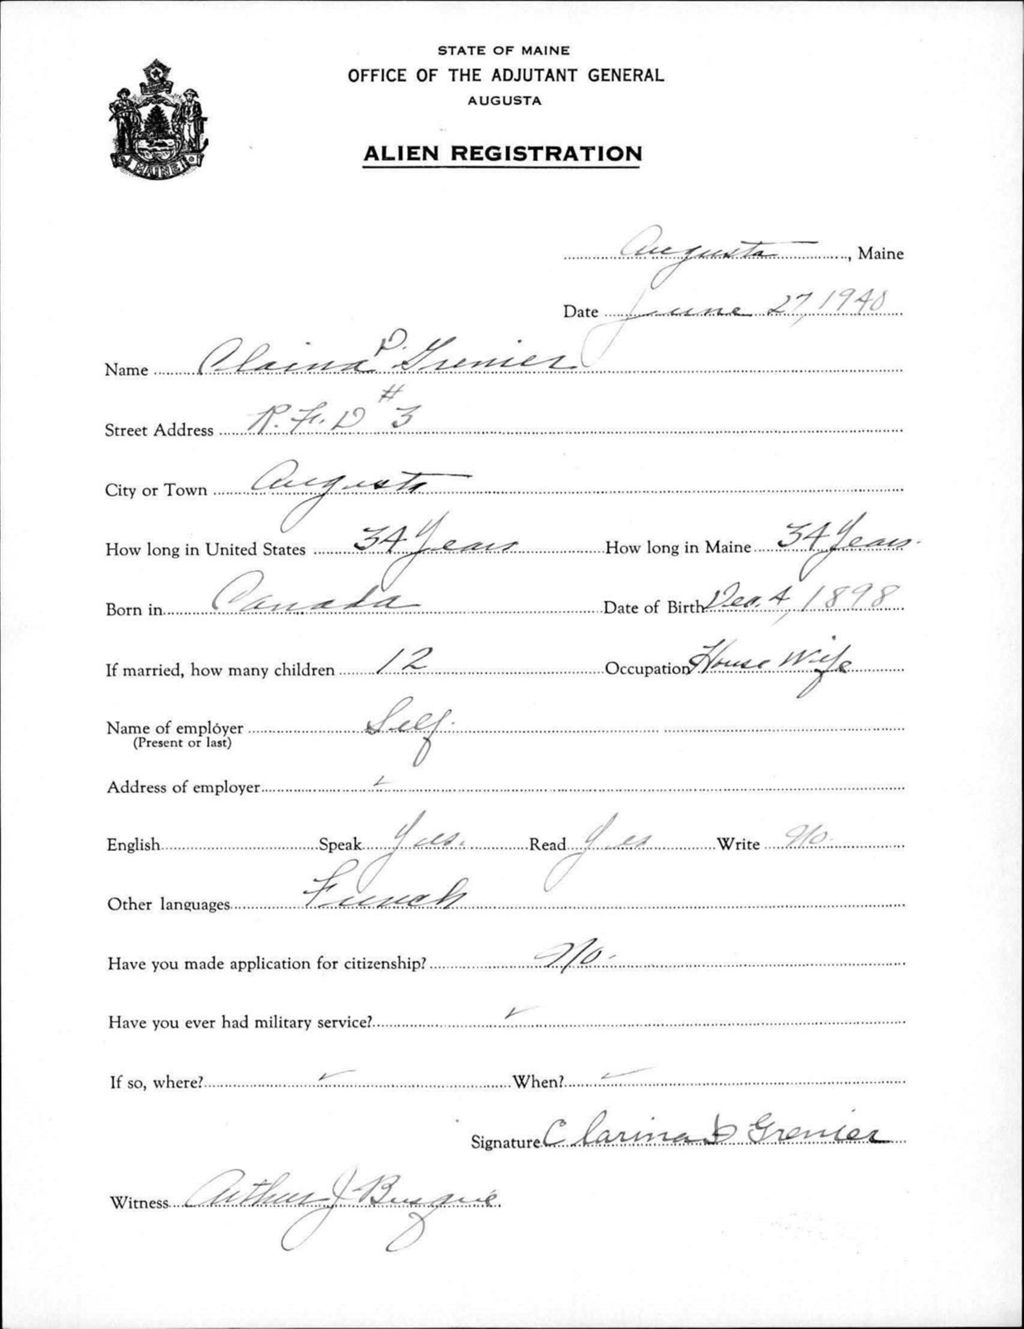 STATE OF MAINE
OFFICE OF THE ADJUTANT GENERAL
AUGUSTA
MAINE
ALIEN REGISTRATION
Augusta, Maine
Date June 27, 1940
Name Claina D. Grenier
Street Address R. F. D #3
City or Town Augusta
How long in United States 34 Years How long in Maine 34 Years.
Born in Canada Date of Birth Dec. 4, 1898
If married, how many children 12 Occupation House Wife
Name of employer Self.
(Present or last)
Address of employer ✓
English Speak Yes. Read Yes Write No.
Other languages French
Have you made application for citizenship? No.
Have you ever had military service? ✓
If so, where? ✓ When? ✓
Signature Clarina D Grenier
Witness Arthur J Busque